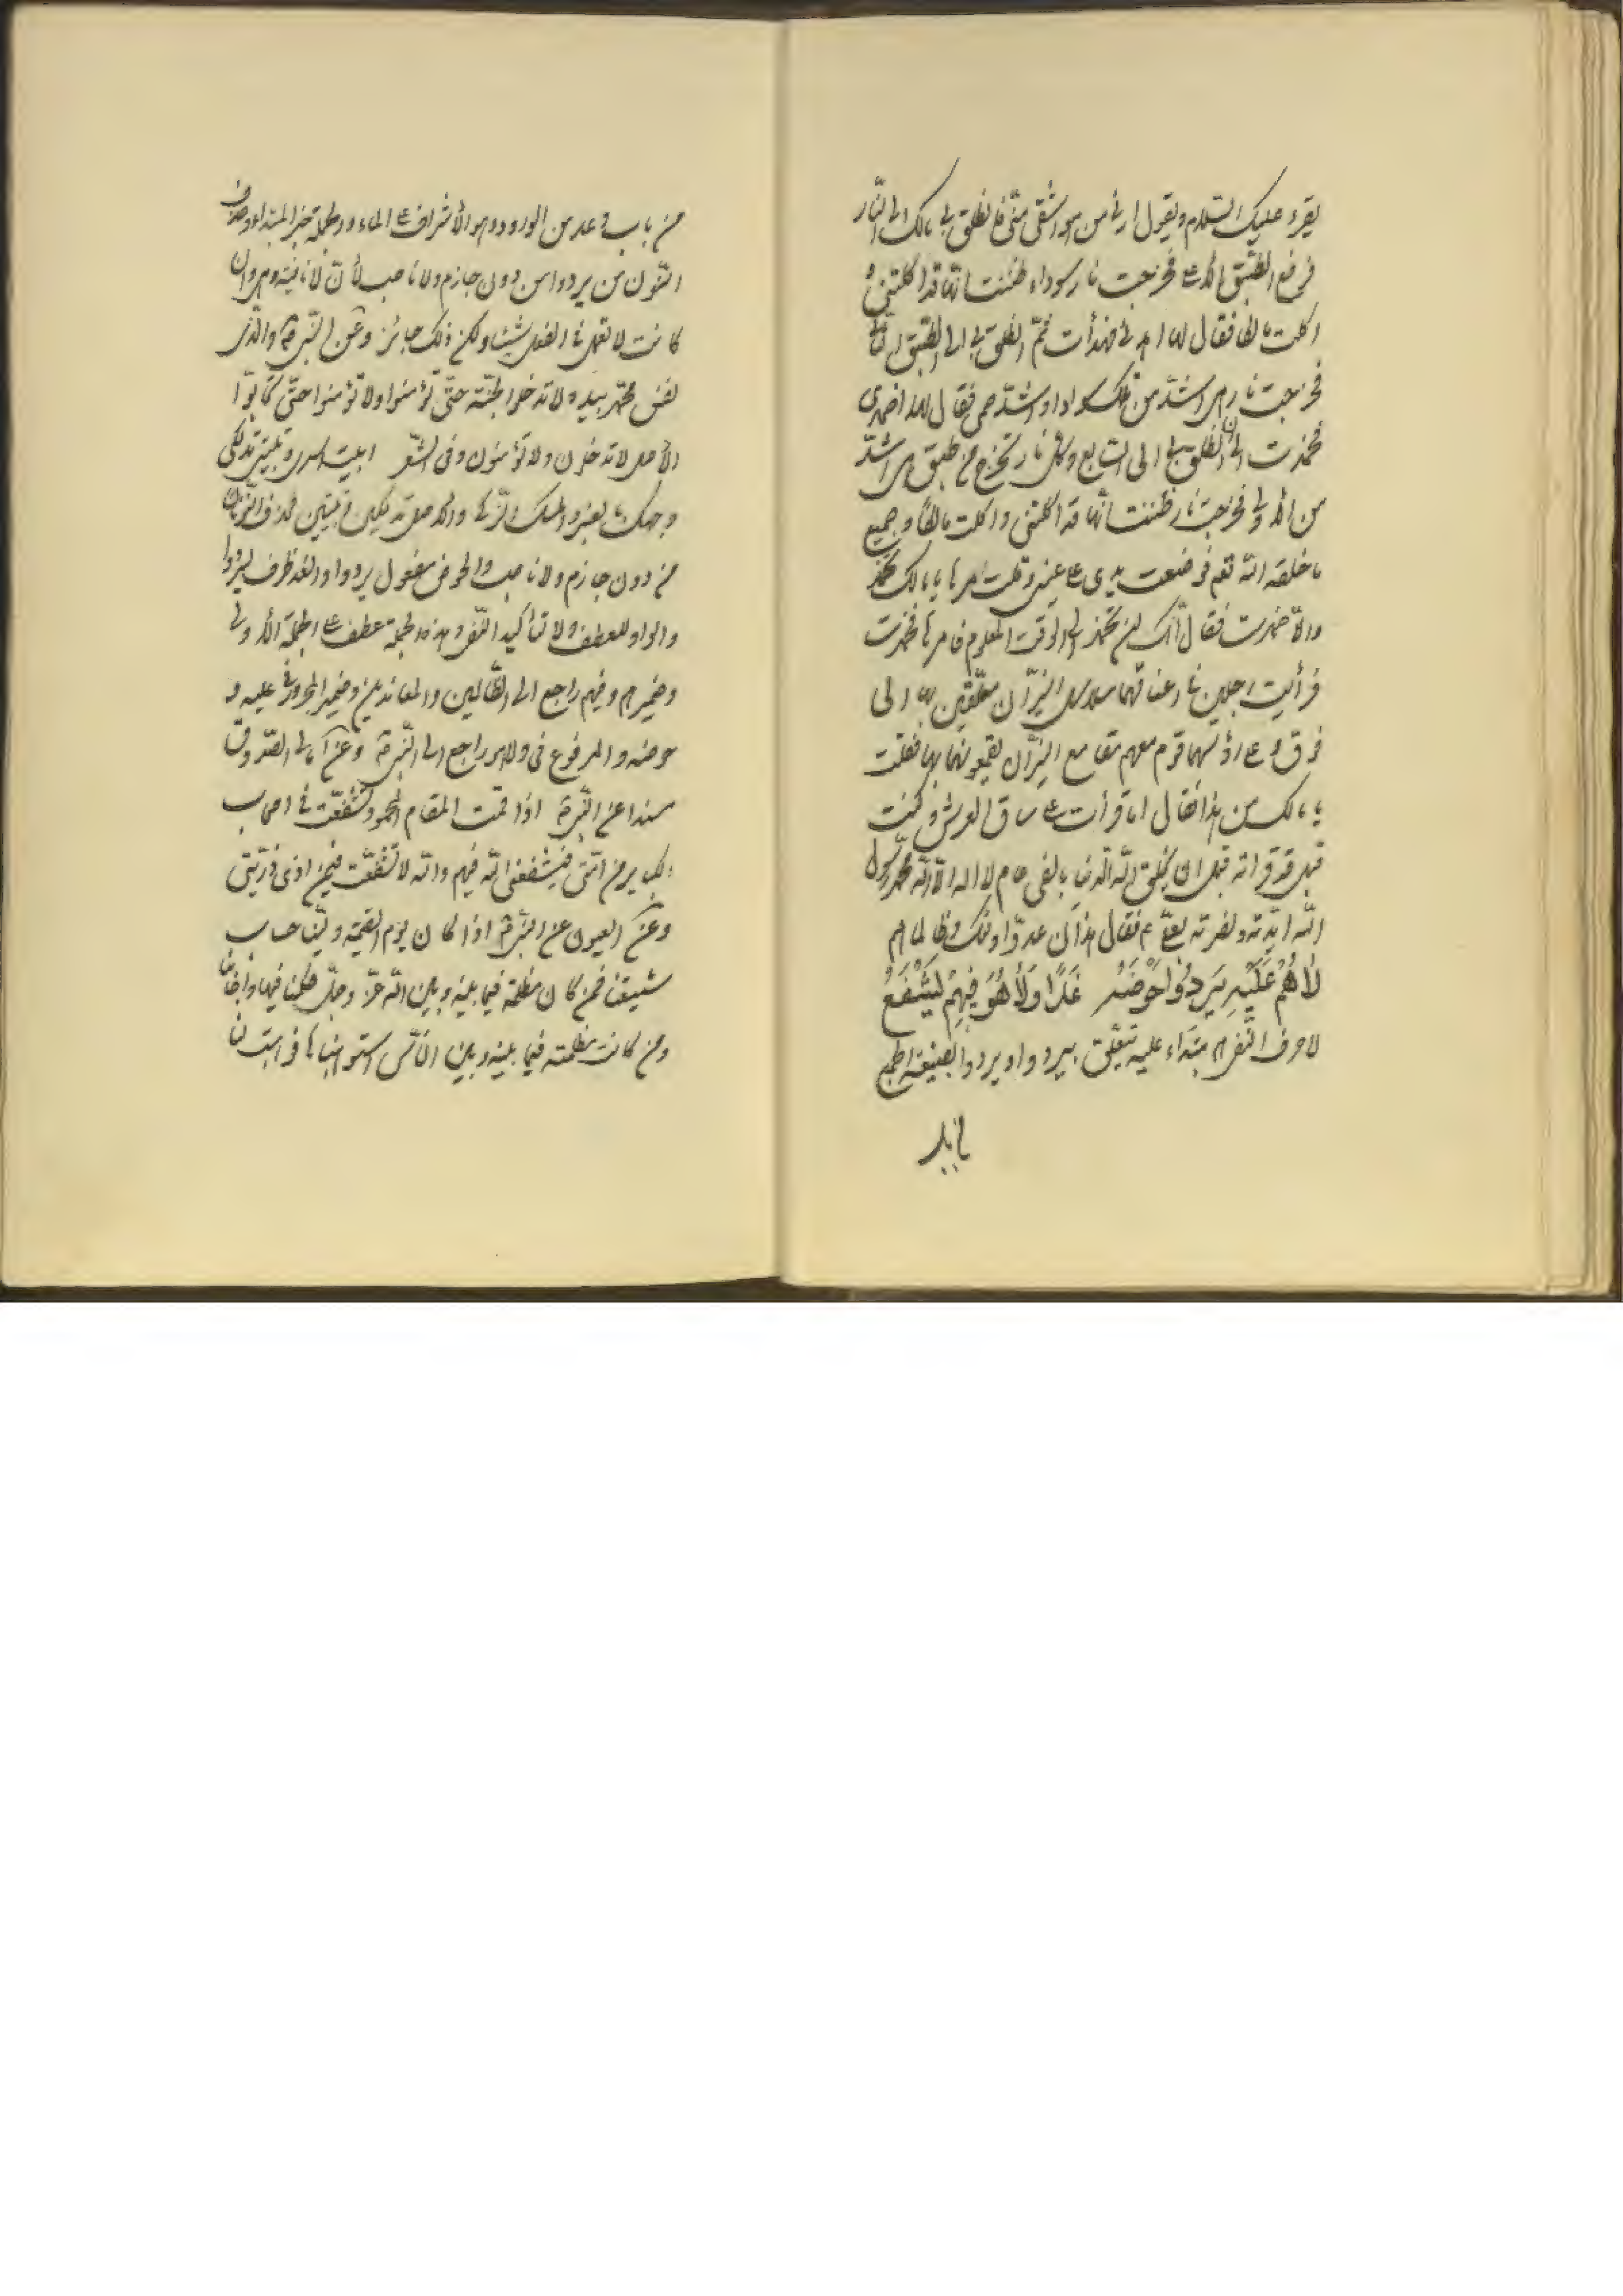 يقرء عليك السّلام ويقول ارنى من هو اشقى منّى فانطلق بى مالك الى النّار
فرفع الطّبق الاعلى فخرجت نار سوداء ظننت انّها قد اكلتنى و
اكلت مالكا فقال لها اهدئى فهدأت ثمّ انطلق بى الى الطّبق الثّانى
فخرجت نار هى اشدّ من تلك سوادا واشدّ حمى فقال لها اخمدى
فخمدت الى ان انطلق بى الى السّابع وكلّ نار تخرج من طبق هى اشدّ
من الاولى فخرجت نار ظننت انّها قد اكلتنى واكلت مالكا وجميع
ما خلقه اللّه فوضعت يدى على عينى وقلت مرها يا مالك تخمد
والّا خمدت فقال انّك لن تخمد الى الوقت المعلوم فامرها فخمدت
فرأيت رجلين فى اعناقهما سلاسل النّيران معلّقين بها الى
فوق وعلى رؤسهما قوم معهم مقامع النّيران يقمعونهما بها فقلت
يا مالك من هذا فقال اما قرأت على ساق العرش وكنت
قبل قد قرأته قبل ان يخلق اللّه الدّنيا بالفى عام لا اله الّا اللّه محمّد رسول
اللّه ايّدته ونصرته بعلىّ فقال هذان عدوّا اولئك وظالماهم
لَاهُم عَلَيْهِ يَرِدُوا حَوْضَهُ غَدًا وَلَا هُوَ فِيهِمُ يَشْفَعُ
لا حرف النّفى هم مبتداء عليه متعلّق بيردوا ويردوا بصيغة الجمع
من باب وعد من الورود وهو الاشراف على الماء والجملة خبر المبتداء وحذف
النّون من يردوا من دون جازم ولا ناصب لأنّ لا نافية وهى وان
كانت لا تعمل فى الفعل شيئا ولكن ذلك جائز وعن النّبى والّذى
نفس محمّد بيده لا تدخلوا الجنّة حتّى تؤمنوا ولا تؤمنوا حتّى تحابّوا
الاصل لا تدخلون ولا تؤمنون وفى الشّعر ابيت اسرى وتبيتى تدلكى
وجهك بالعنبر والمسك الزّكى والاصل تدلكين وتبيتين فحذف النّونان
من دون جازم ولا ناصب والحوض مفعول يردوا والغد ظرف ليردوا
والواو للعطف ولا لتأكيد النّفى وهذه الجملة عطف على الجملة الاولى
وضمير هم وفيهم راجع الى الظّالمين والمعاندين وضمير المجرور فى عليه و
حوضه والمرفوع فى ولا هو راجع الى النّبى وعن امالى الصّدوق
مسندا عن النّبى اذا قمت المقام المحمود تشفّعت فى اصحاب
الكباير من امّتى فيشفّعنى اللّه فيهم واللّه لا تشفّعت فيمن اذى ذرّيّتى
وعن العيون عن النّبى اذا كان يوم القيمة ولّينا حساب
شيعتنا فمن كان مظلمته فيما بينه وبين اللّه عزّ وجلّ حكمنا فيها واجابنا
ومن كانت مظلمته فيما بينه وبين النّاس استوهبناها فوهبت لنا
من باب